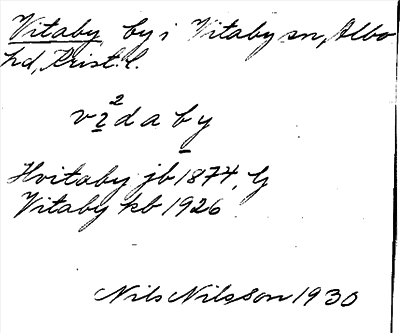 Vitaby by i Vitaby sn, Albo
hd, Krist. l.
vi²daby
Hvitaby jb 1874, G
Vitaby kb 1926
Nils Nilsson 1930